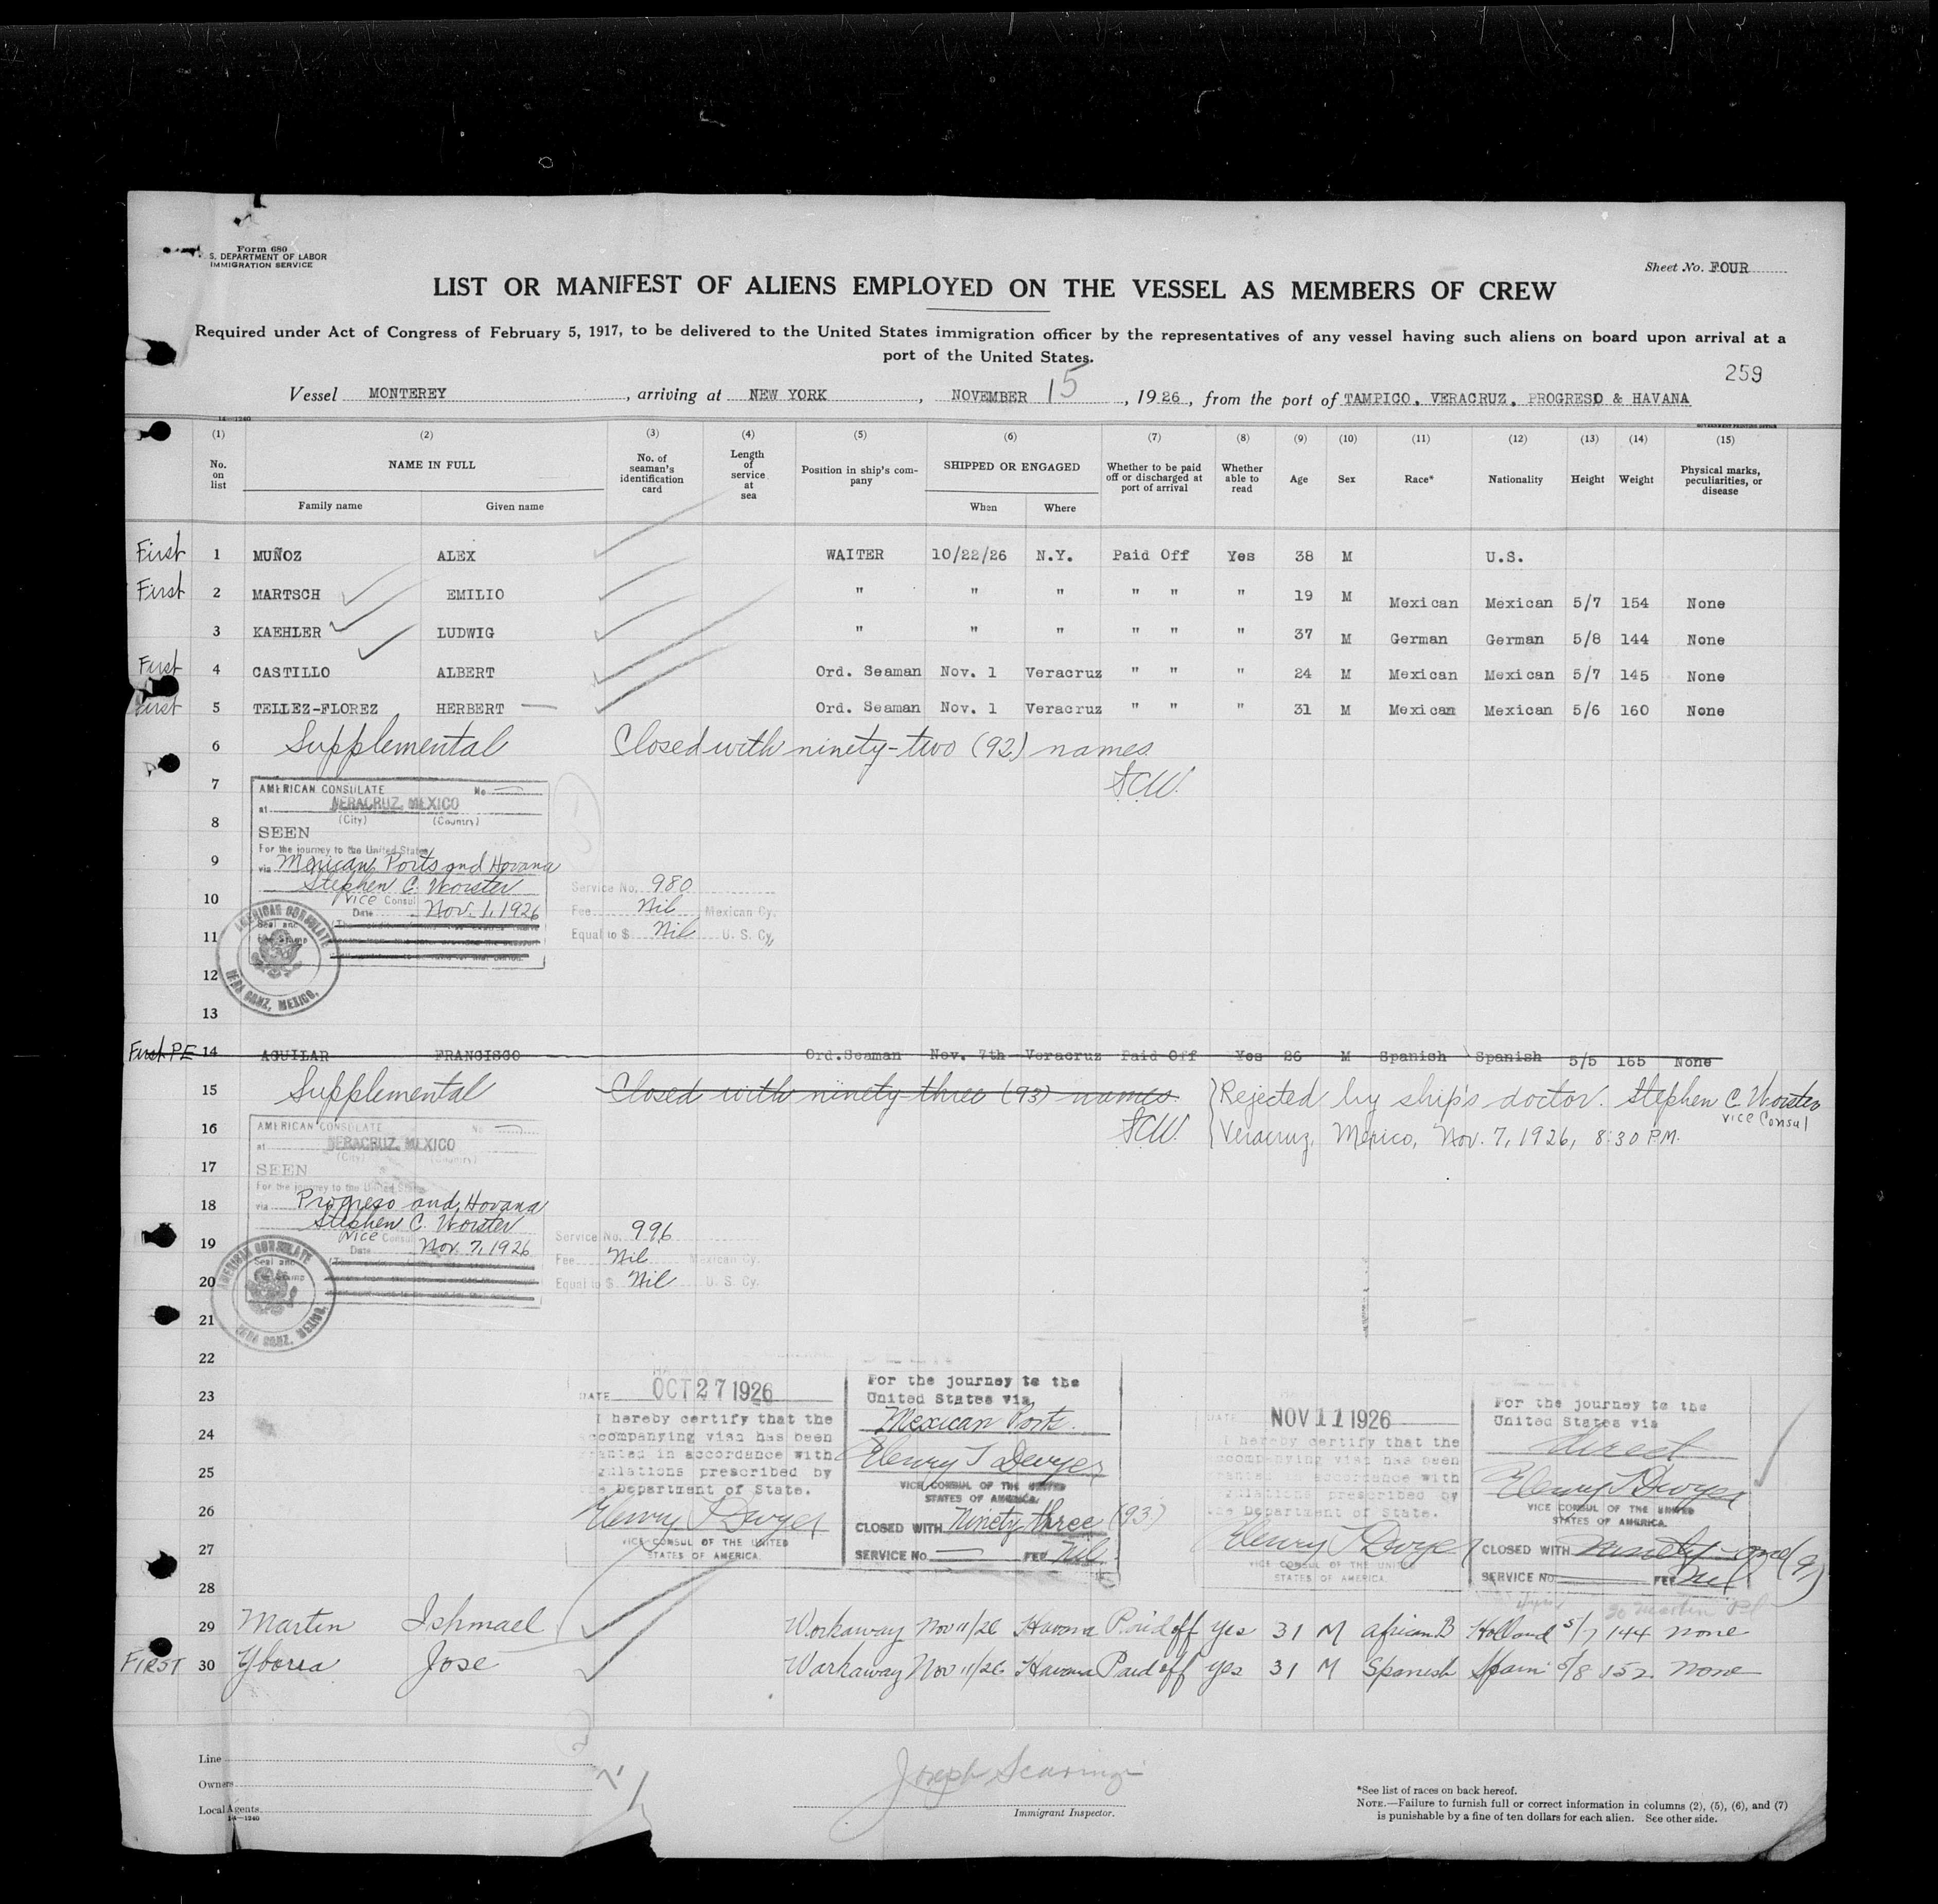 Form 680
S. DEPARTMENT OF LABOR
IMMIGRATION SERVICE
Sheet No. FOUR
LIST OR MANIFEST OF ALIENS EMPLOYED ON THE VESSEL AS MEMBERS OF CREW
Required under Act of Congress of February 5, 1917, to be delivered to the United States immigration officer by the representatives of any vessel having such aliens on board upon arrival at a
port of the United States.
259
Vessel MONTEREY, arriving at NEW YORK, NOVEMBER 15, 1926, from the port of TAMPICO, VERACRUZ, PROGRESO & HAVANA
14—1240
GOVERNMENT PRINTING OFFICE
(1) (2) (3) (4) (5) (6) (7) (8) (9) (10) (11) (12) (13) (14) (15)
No. on list
NAME IN FULL
Family name Given name
No. of seaman's identification card
Length of service at sea
Position in ship's company
SHIPPED OR ENGAGED
When Where
Whether to be paid off or discharged at port of arrival
Whether able to read
Age
Sex
Race*
Nationality
Height
Weight
Physical marks, peculiarities, or disease
First 1 MUÑOZ ALEX WAITER 10/22/26 N.Y. Paid Off Yes 38 M U.S.
First 2 MARTSCH EMILIO " " " " " " 19 M Mexican Mexican 5/7 154 None
3 KAEHLER LUDWIG " " " " " " 37 M German German 5/8 144 None
First 4 CASTILLO ALBERT Ord. Seaman Nov. 1 Veracruz " " " 24 M Mexican Mexican 5/7 145 None
First 5 TELLEZ-FLOREZ HERBERT Ord. Seaman Nov. 1 Veracruz " " " 31 M Mexican Mexican 5/6 160 None
6 Supplemental Closed with ninety-two (92) names
7 SCW.
AMERICAN CONSULATE No
at VERACRUZ, MEXICO
(City) (Country)
8
SEEN
For the journey to the United States
9
via Mexican Ports and Havana
Stephen C. Worster
Vice Consul
10
Date Nov. 1, 1926
Service No. 980
Fee Nil Mexican Cy.
Equal to $ Nil U. S. Cy,
AMERICAN CONSULATE
Seal and
VERA CRUZ, MEXICO.
11
12
13
First PE 14 AGUILAR FRANCISCO Ord.Seaman Nov. 7th Veracruz Paid Off Yes 26 M Spanish Spanish 5/5 165 None
15 Supplemental Closed with ninety-three (93) names. Rejected by ship's doctor. Stephen C Worster
Vice Consul
16 SCW. Veracruz, Mexico, Nov. 7, 1926, 8:30 P.M.
AMERICAN CONSULATE No
at VERACRUZ, MEXICO
(City) (Country)
17
SEEN
For the journey to the United States
18
via Progreso and Havana
Stephen C. Worster
Vice Consul
19
Date Nov. 7, 1926
Service No. 996
Fee Nil Mexican Cy.
Equal to $ Nil U. S. Cy.
AMERICAN CONSULATE
Seal and
VERA CRUZ, MEXICO.
20
21
22
23
24
25
26
27
28
DATE OCT 27 1926
I hereby certify that the
accompanying visa has been
granted in accordance with
regulations prescribed by
the Department of State.
Henry T Dwyer
VICE CONSUL OF THE UNITED
STATES OF AMERICA
For the journey to the
United States via
Mexican Ports.
Henry T Dwyer
VICE CONSUL OF THE UNITED
STATES OF AMERICA.
CLOSED WITH Ninety three (93)
SERVICE No FEE Nil
DATE NOV 11 1926
I hereby certify that the
accompanying visa has been
granted in accordance with
regulations prescribed by
the Department of State.
Henry T Dwyer
VICE CONSUL OF THE UNITED
STATES OF AMERICA.
For the journey to the
United States via
direct
Henry T Dwyer
VICE CONSUL OF THE UNITED
STATES OF AMERICA.
CLOSED WITH Ninety-
SERVICE No FEE Nil
29 Martin Ishmael Workaway Nov 11/26 Havana Paid off yes 31 M African B Holland 5/7 144 none
FIRST 30 Yborra Jose Workaway Nov 11/26 Havana Paid off yes 31 M Spanish Spain 5/8 152 none
Line
Owners
Local Agents
14—1240
Joseph Scaringi
Immigrant Inspector.
*See list of races on back hereof.
NOTE.—Failure to furnish full or correct information in columns (2), (5), (6), and (7)
is punishable by a fine of ten dollars for each alien. See other side.